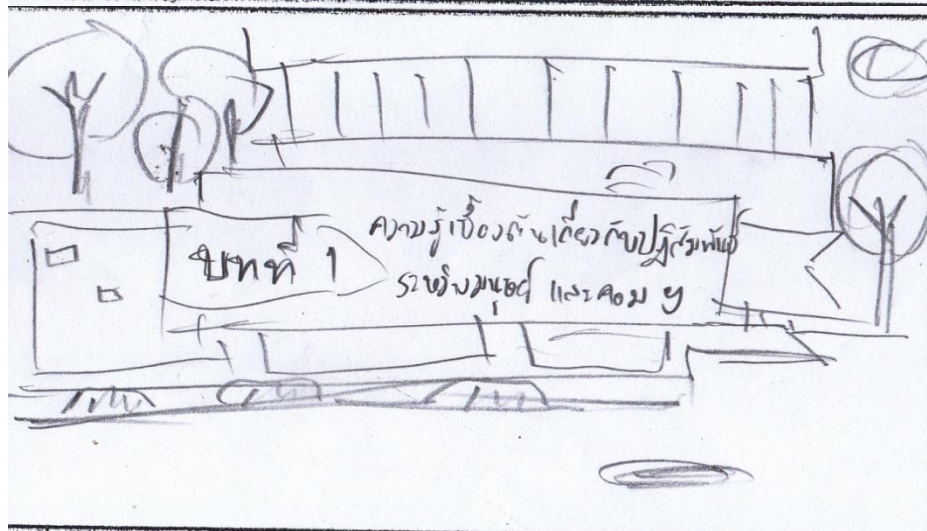 บทที่ 1
ความรู้เบื้องต้นเกี่ยวกับปฏิสัมพันธ์
ระหว่างมนุษย์ และคอม ฯ